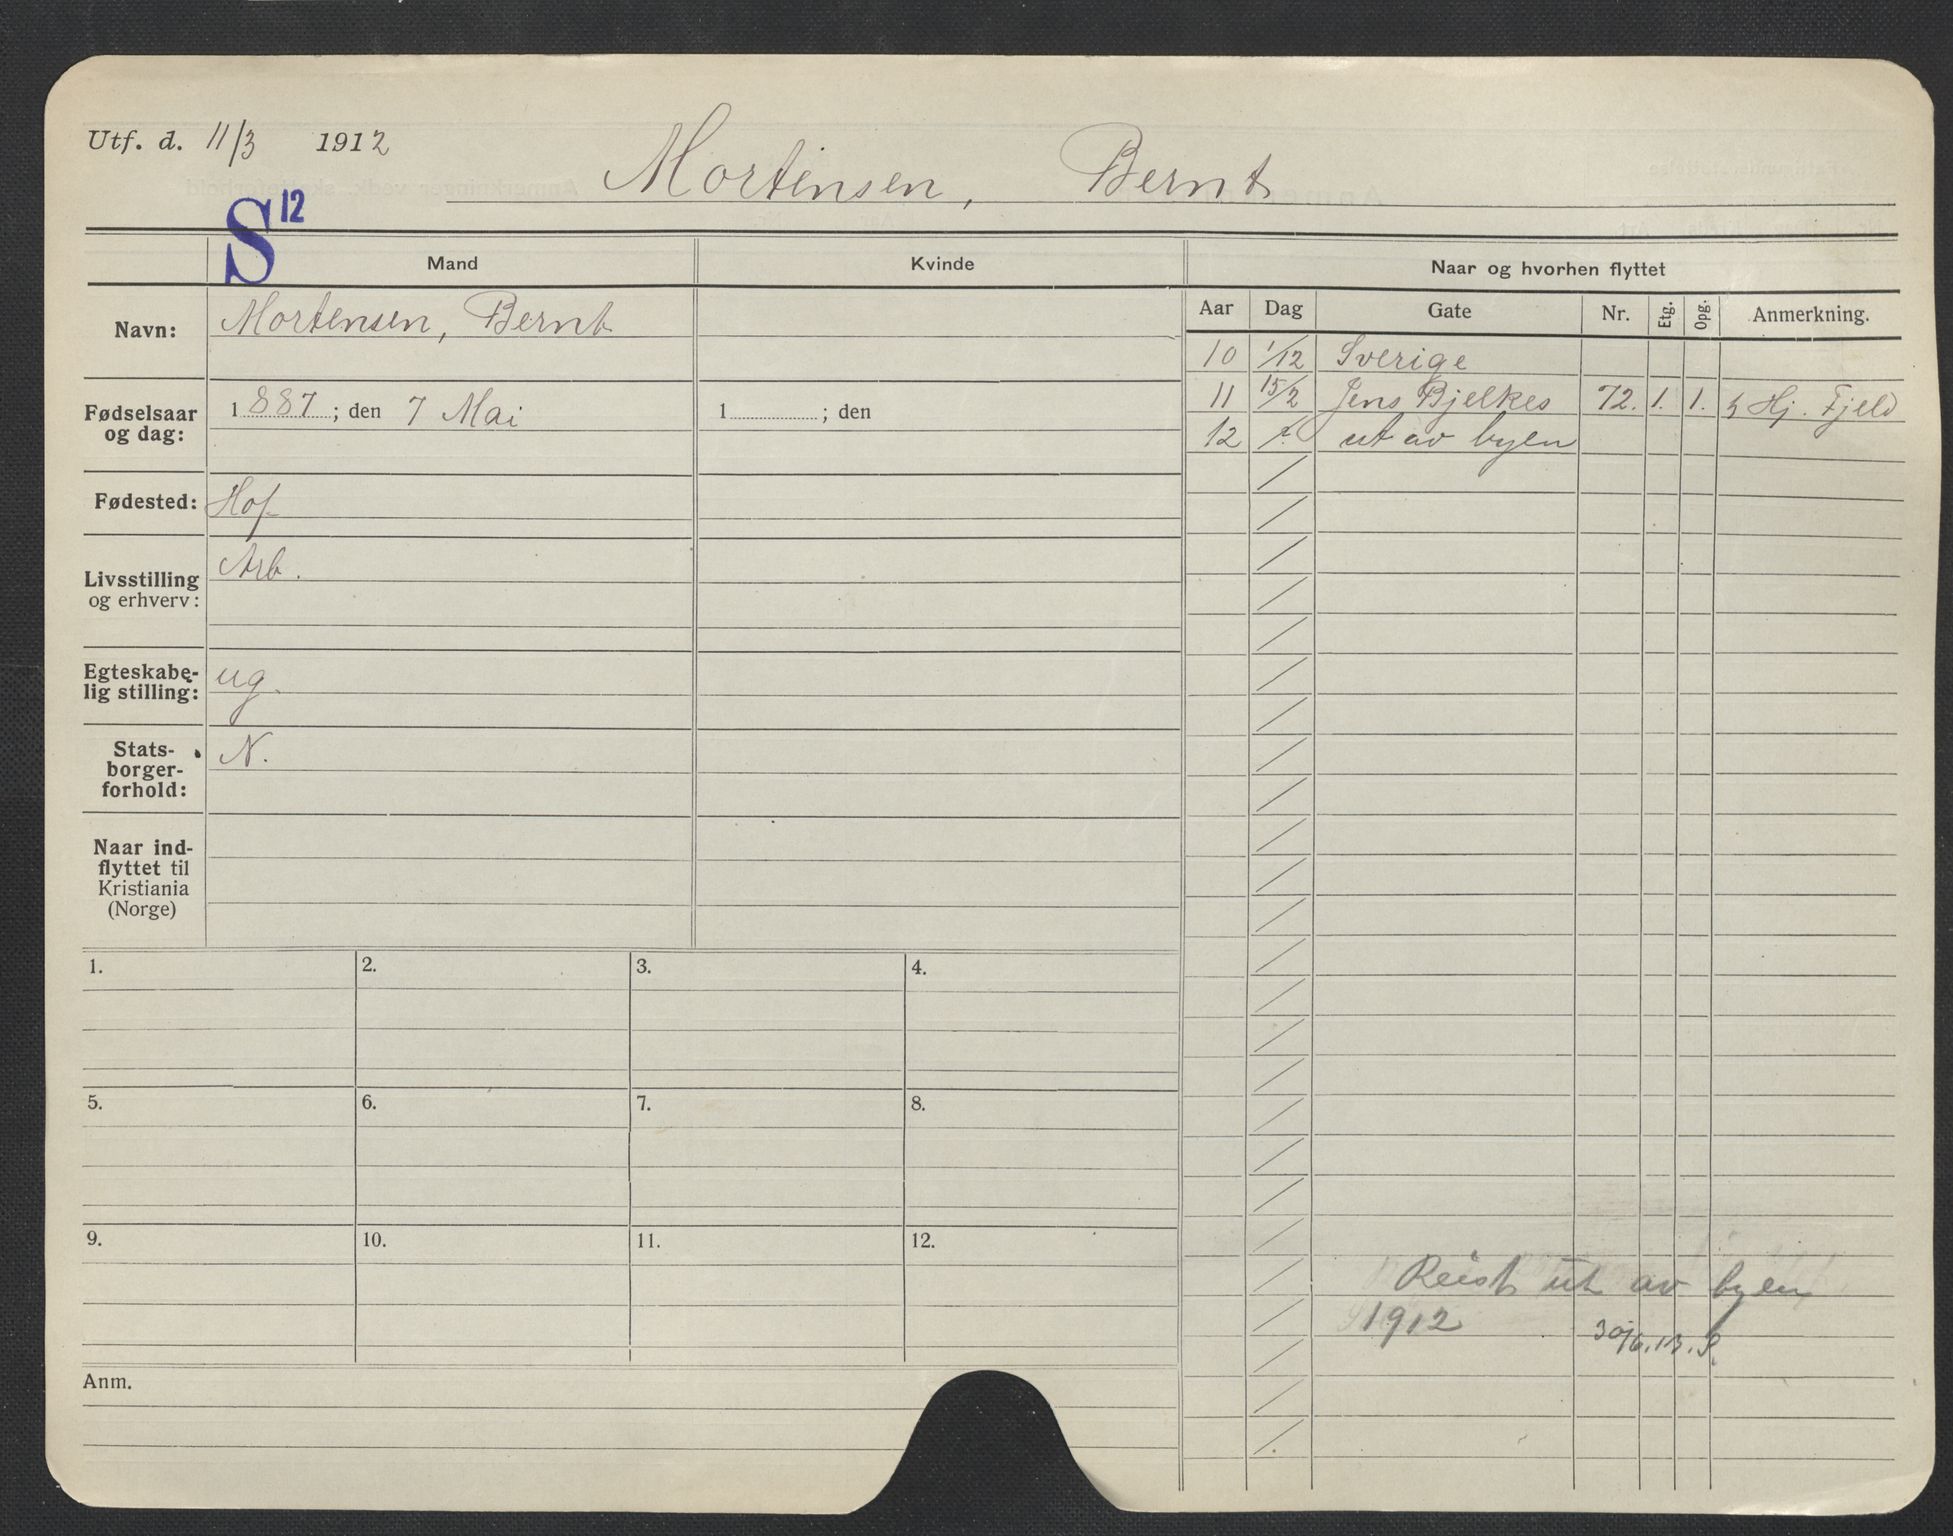 Utf. d. 11/3 1912
Mortensen, Bernt
S 12
Mand
Kvinde
Naar og hvorhen flyttet
Navn: Mortensen, Bernt
Aar Dag Gate Nr. Etg. Opg. Anmerkning.
10 1/12 Sverige
11 15/2 Jens Bjelkes 72. 1. 1. Hj. Fjeld
12 ut av byen
Fødselsaar
og dag:
1887; den 7 Mai
1 ; den
Fødested: Hof
Livsstilling
og erhverv:
Arb.
Egteskabe-
lig stilling:
ug.
Stats-
borger-
forhold:
N.
Naar ind-
flyttet til
Kristiania
(Norge)
1. 2. 3. 4.
5. 6. 7. 8.
9. 10. 11. 12.
Reist ut av byen
1912
30/6.13.
Anm.